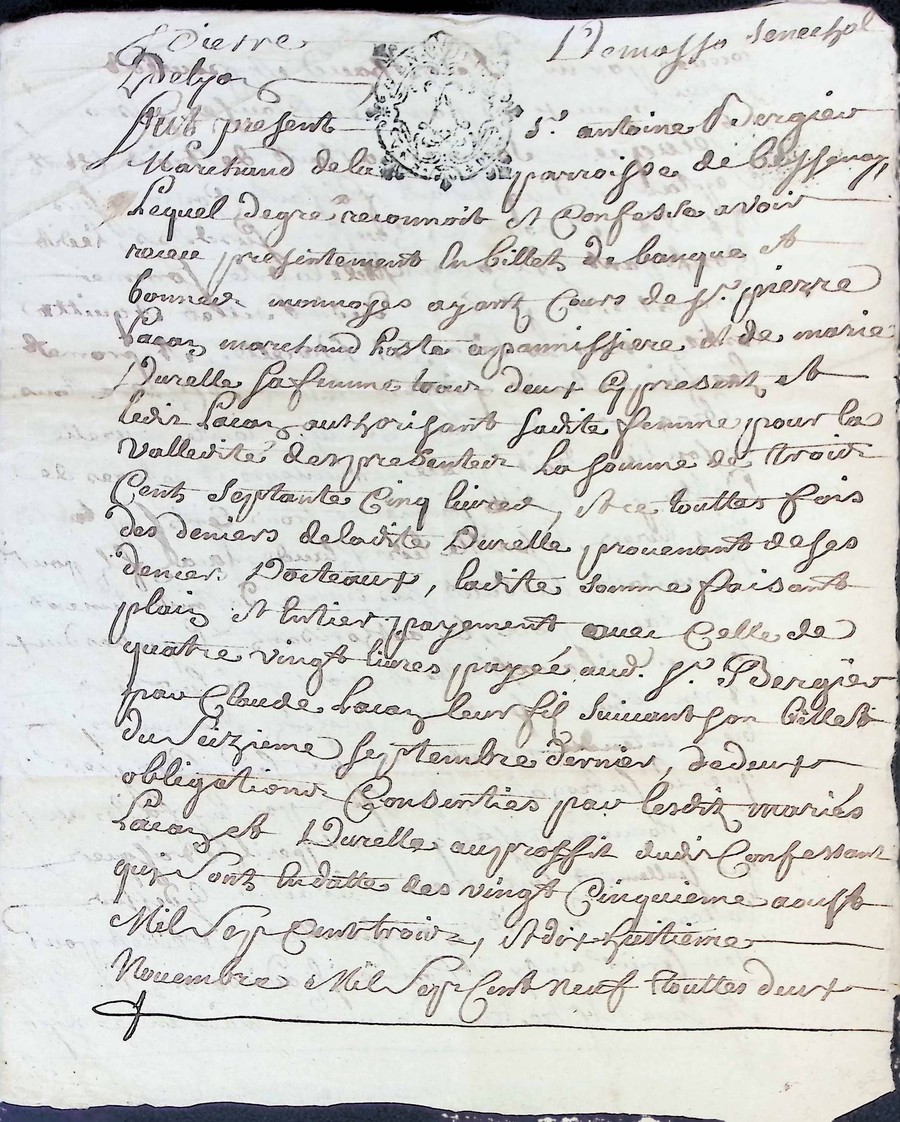 Pierre
Delyon
Fut present sr. antoine Bergier
Marchand de la parroisse de bessenay
Lequel degré reconnoit et Confesse avoir
receu presentement en billets de banque et
bonnes monnoyes ayant Cours de sr. pierre
Lacay marchand hoste a pannissiere et de marie
Durelle sa femme tous deux cy present, et
ledit Lacay authorisant sadite femme pour la
valledité des presentes La somme de trois
Cent Septante Cinq livres, et ce touttes fois
des deniers de ladite Durelle provenant de ses
deniers Doteaux, ladite somme faisant
plain et Entier payement avec Celle de
quatre vingt livres payée aud. sr. Bergier
par Claude Lacay leur fils suivant son billet
du seizieme septembre dernier, de deux
obligations Consenties par lesdit mariés
Lacay et Durelle au proffit dudit Confessant
quy sont en datte des vingt Cinquieme aoust
Mil Sept Cent trois, et dix huitieme
Novembre Mil Sept Cent neuf touttes deux